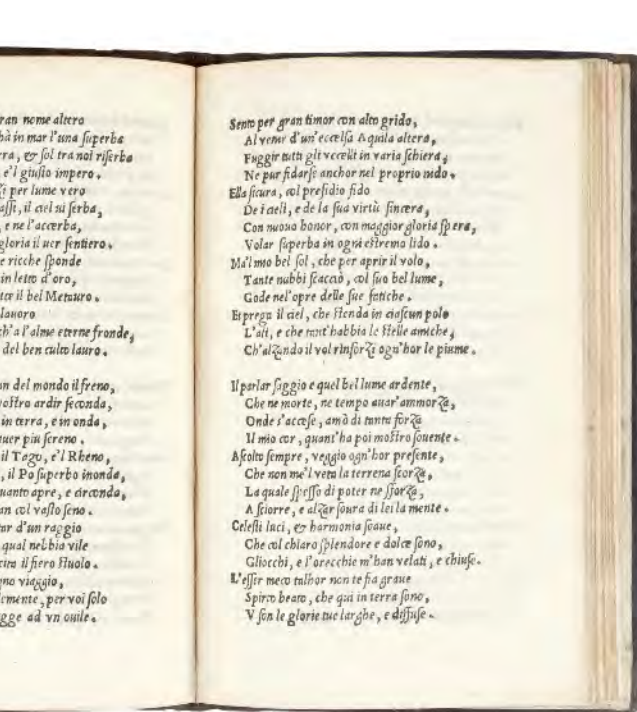 ran nome altero
hà in mar l'una superba
rra, & sol tra noi riserba
e'l giusto impero.
per lume vero
assi, il ciel ui serba,
e ne l'accerba,
gloria il uer sentiero.
e ricche sponde
in letto d'oro,
il bel Metauro.
lauoro
ch'a l'alme eterne fronde,
del ben culto lauro.
un del mondo il freno,
vostro ardir seconda,
in terra, e in onda,
uer piu sereno.
il Tago, e'l Rheno,
, il Po superbo inonda,
uanto apre, e circonda,
an col vasto seno.
d'un raggio
qual nebbia vile
il fiero stuolo.
no viaggio,
emente, per voi solo
gge ad vn ouile.
Sento per gran timor con alto grido,
Al venir d'un'eccelsa Aquila altera,
Fuggir tutti gli vccelli in varia schiera,
Ne pur fidarsi anchor nel proprio nido.
Ella sicura, col presidio fido
De i cieli, e de la sua virtù sincera,
Con nuouo honor, con maggior gloria spera,
Volar superba in ogni estremo lido.
Ma'l mio bel sol, che per aprir il volo,
Tante nubbi scacciò, col suo bel lume,
Gode nel'opre delle sue fatiche.
Et prega il ciel, che stenda in ciascun polo
L'ali, e che tant'habbia le stelle amiche,
Ch'alzando il vol rinforzi ogn'hor le piume.
Il parlar saggio e quel bel lume ardente,
Che ne morte, ne tempo auar'ammorza,
Onde s'accese, amò di tanta forza
Il mio cor, quant'ha poi mostro souente.
Ascolto sempre, veggio ogn'hor presente,
Che non me'l veta la terrena scorza,
La quale spesso di poter ne sforza,
A sciorre, e alzar soura di lei la mente.
Celesti luci, & harmonia soaue,
Che col chiaro splendore e dolce sono,
Gliocchi, e l'orecchie m'han velati, e chiuse.
L'esser meco talhor non te fia graue
Spirto beato, che qui in terra sono,
V son le glorie tue larghe, e diffuse.